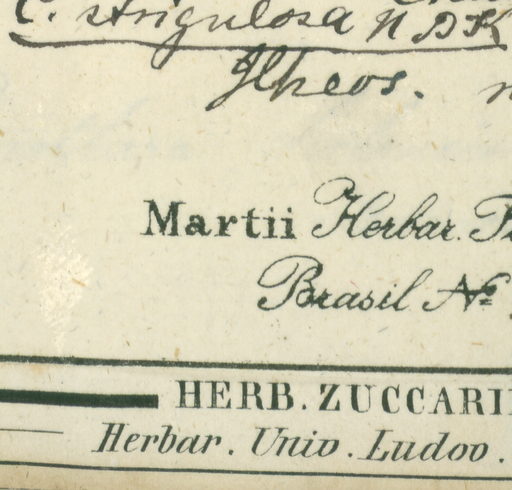 C. strigulosa N DK
Ilheos.
Martii Herbar.
Brasil №
HERB. ZUCCARI
Herbar. Univ. Ludov.